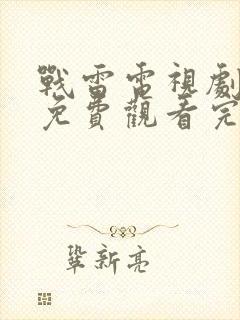 戰雷電視劇
免費觀看完
鞏新亮